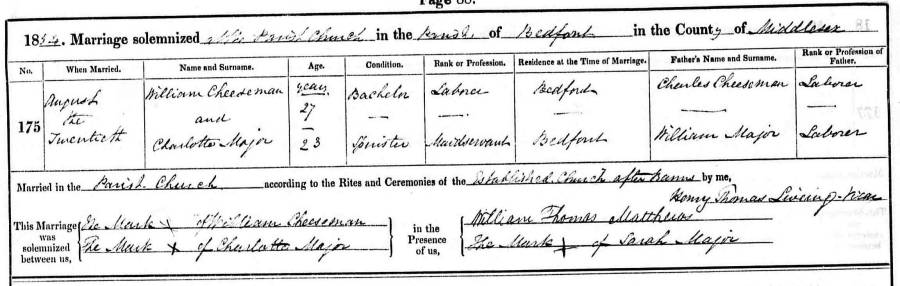 Page 88.
1854. Marriage solemnized at the Parish Church in the Parish of Bedfont in the County of Middlesex
No. When Married. Name and Surname. Age. Condition. Rank or Profession. Residence at the Time of Marriage. Father's Name and Surname. Rank or Profession of Father.
175 August the Twentieth William Cheeseman and Charlotte Major years 27 23 Bachelor Spinster Laborer Maidservant Bedfont Bedfont Charles Cheeseman William Major Laborer Laborer
Married in the Parish Church according to the Rites and Ceremonies of the Established Church after Banns by me,
Henry Thomas Vicar
This Marriage was solemnized between us, The Mark X of William Cheeseman The Mark X of Charlotte Major in the Presence of us, William Thomas Matthews The Mark X of Sarah Major